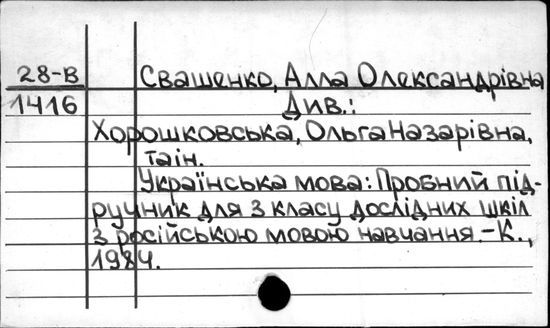 28-В Свашенко, Алла Олександрівна
1416 Див.:
Хорошковська, Ольга Назарівна,
та ін.
Українська мова: Пробний під-
ручник для 3 класу дослідних шкіл
з російською мовою навчання.-К.,
1984.